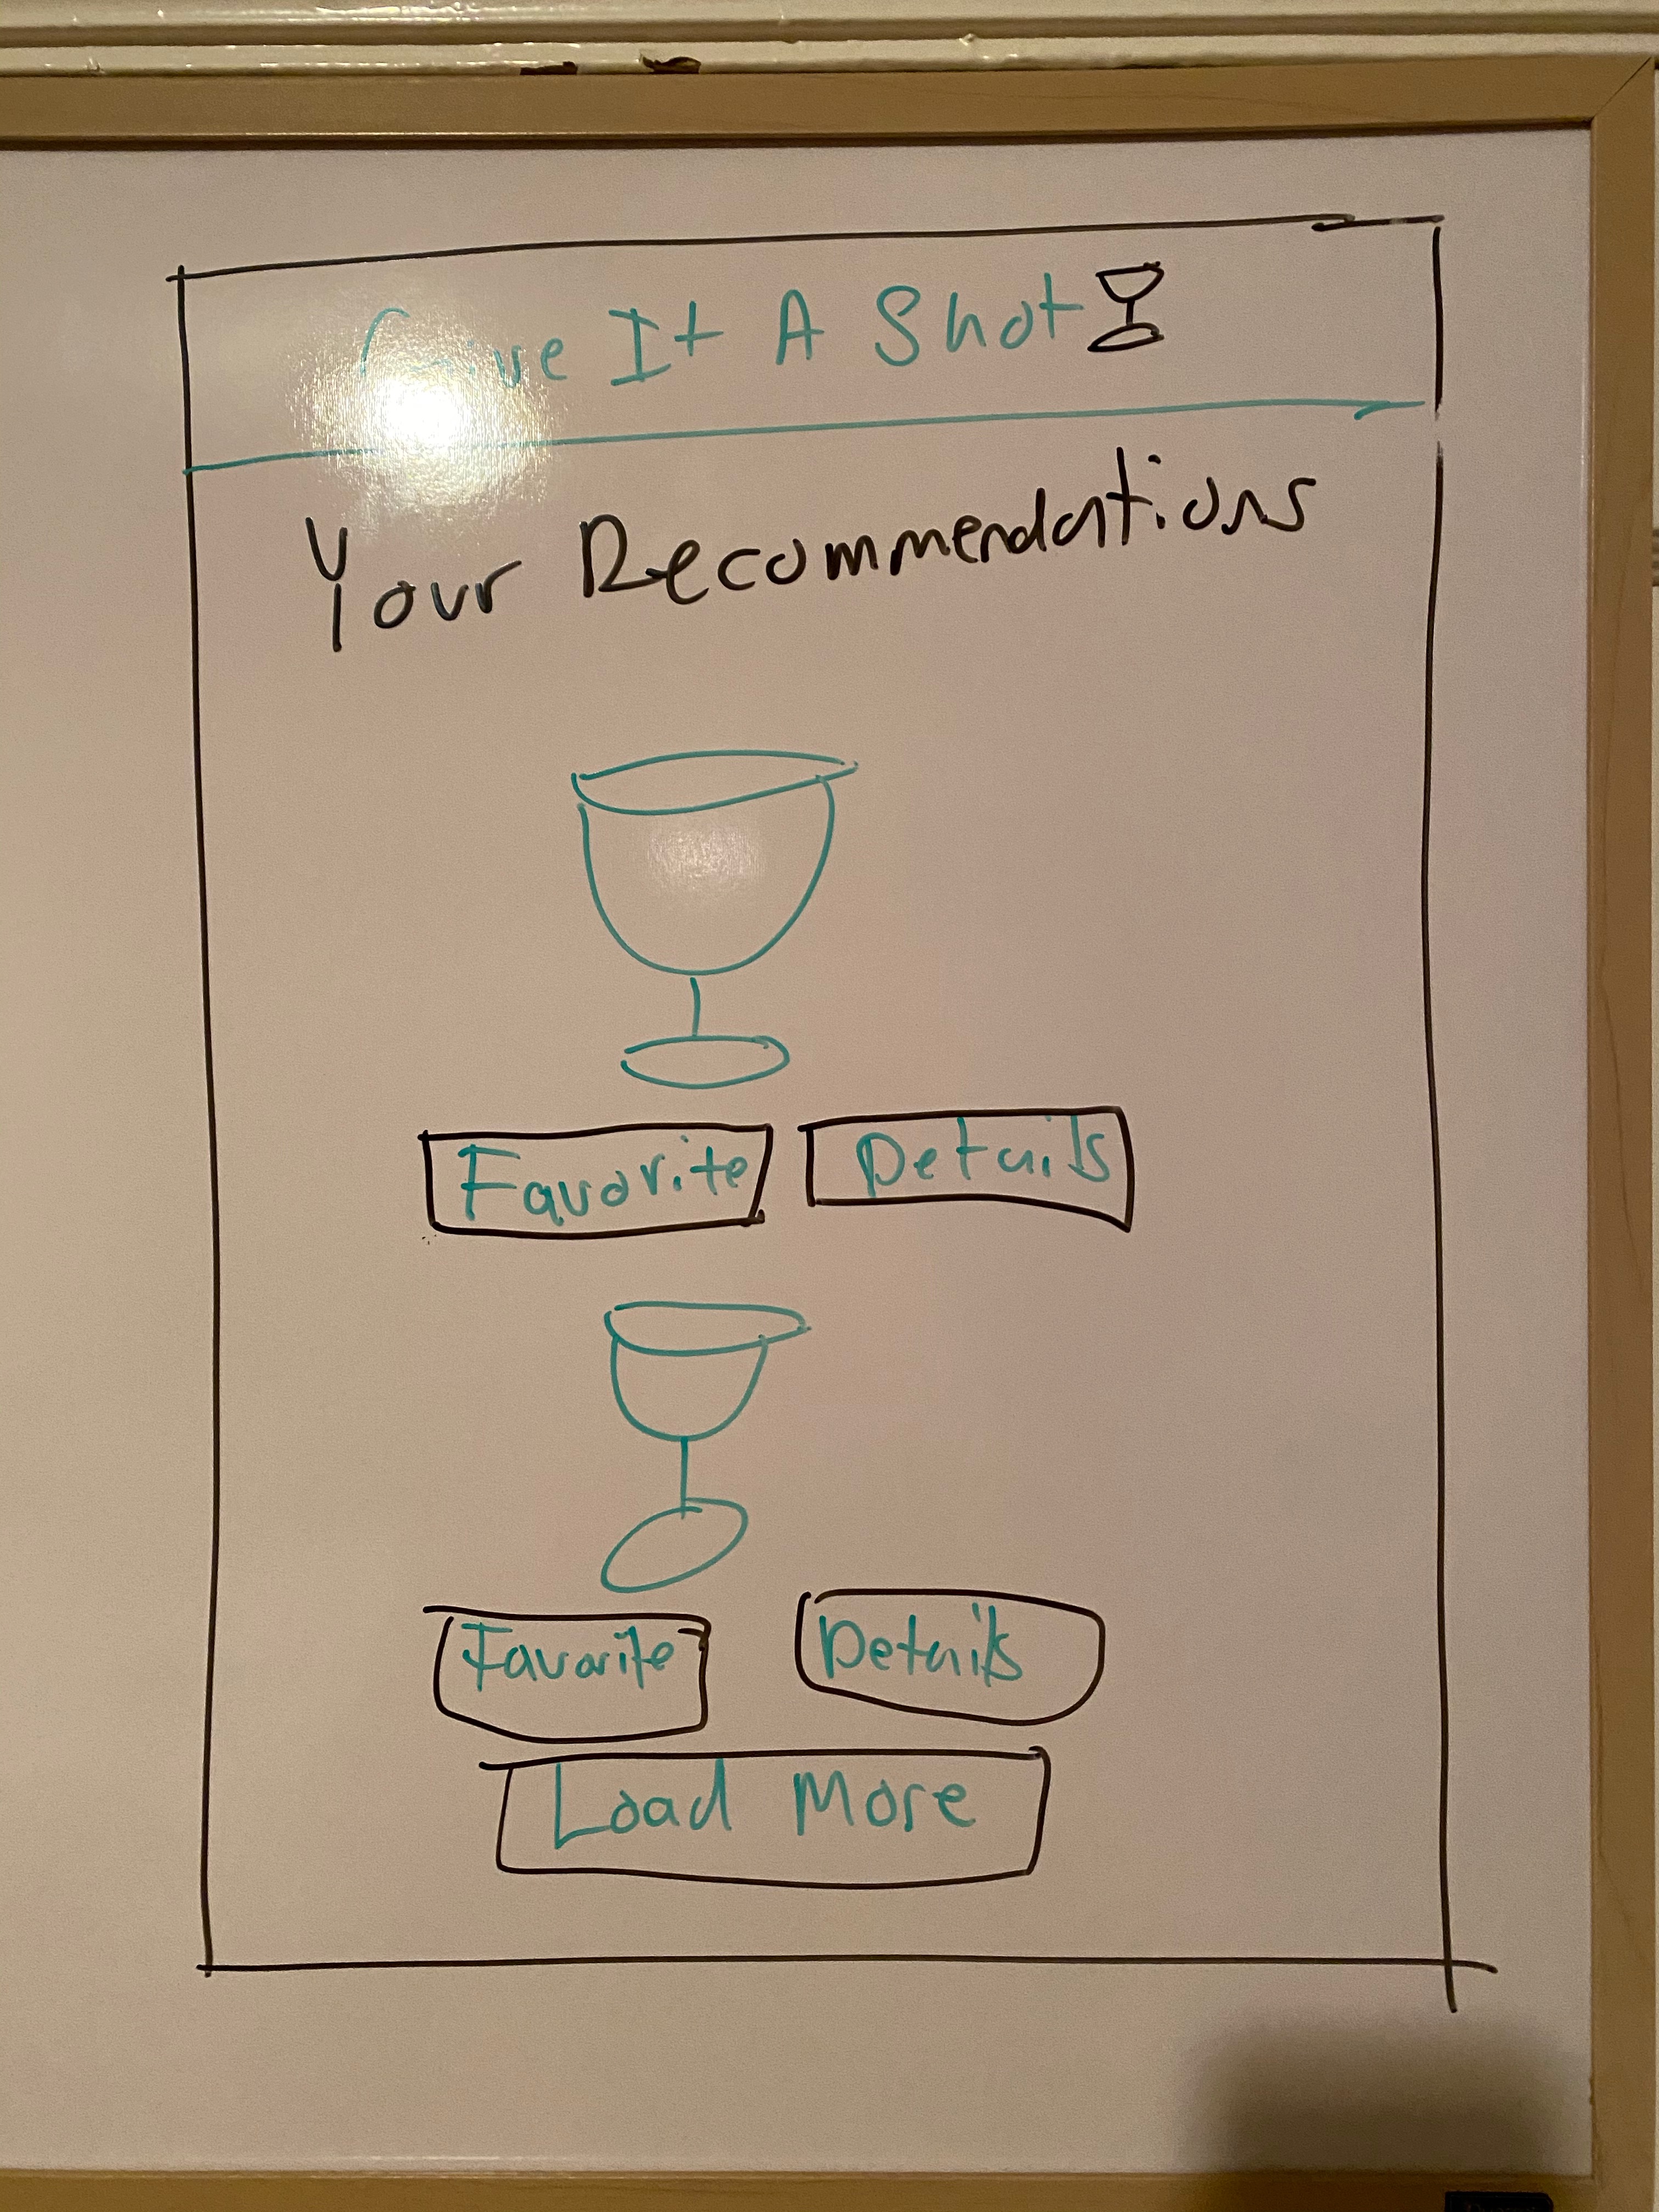 Give It A Shot
Your Recommendations
Favorite Details
Favorite Details
Load More